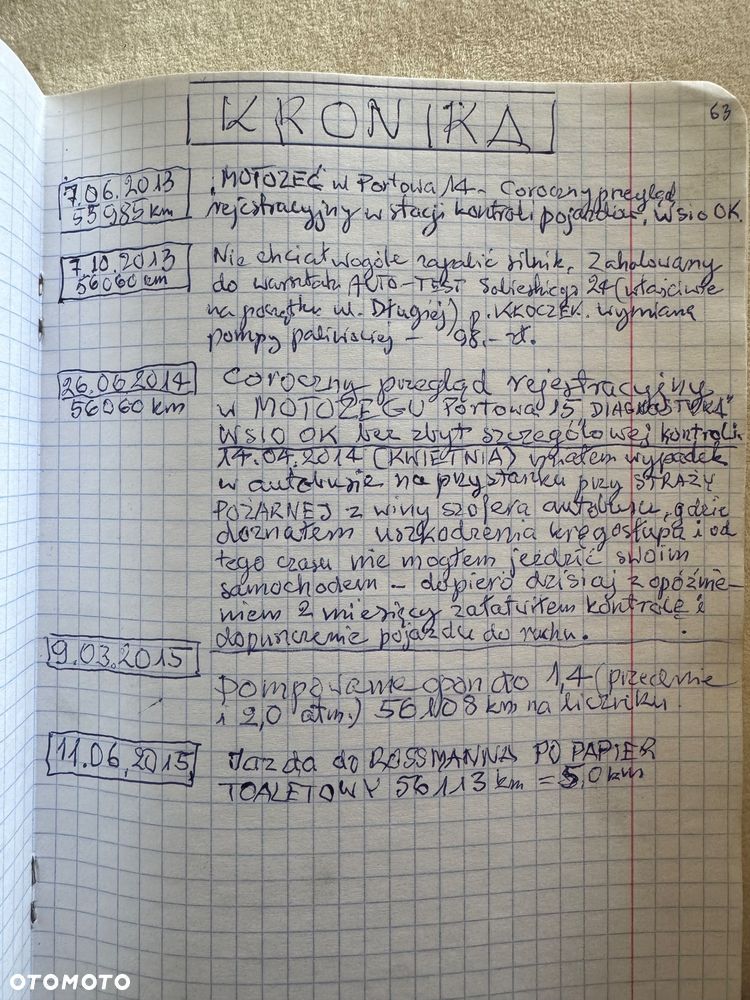 63
KRONIKA
7.06.2013
55985 km
"MOTOZEĆ w Portowa 14 - Coroczny przegląd
rejestracyjny w stacji kontroli pojazdów, Wsio OK.
7.10.2013
56060 km
Nie chciał wogóle zapalić silnik. Zaholowany
do warsztatu AUTO-TEST Sobieskiego 24 (właściwie
na początku ul. Długiej) p. KKOCZEK. wymiana
pompy paliwowej - 98,- zł.
26.06.2014
56060 km
Coroczny przegląd rejestracyjny
w MOTOZEGU Portowa 15 DIAGNOSTYKA"
WSIO OK bez zbyt szczegółowej kontroli.
14.04.2014 (KWIETNIA) miałem wypadek
w autobusie na przystanku przy STRAŻY
POŻARNEJ z winy szofera autobusu, gdzie
doznałem uszkodzenia kręgosłupa i od
tego czasu nie mogłem jeździć swoim
samochodem - dopiero dzisiaj z opóźnie-
niem 2 miesięcy załatwiłem kontrolę i
dopuszczenie pojazdu do ruchu.
9.03.2015
Pompowanie opon do 1,4 (przednie
i 2,0 atm.) 56108 km na liczniku.
11.06.2015
Jazda do ROSSMANNA PO PAPIER
TOALETOWY 56113 km = 5,0 km
OTOMOTO